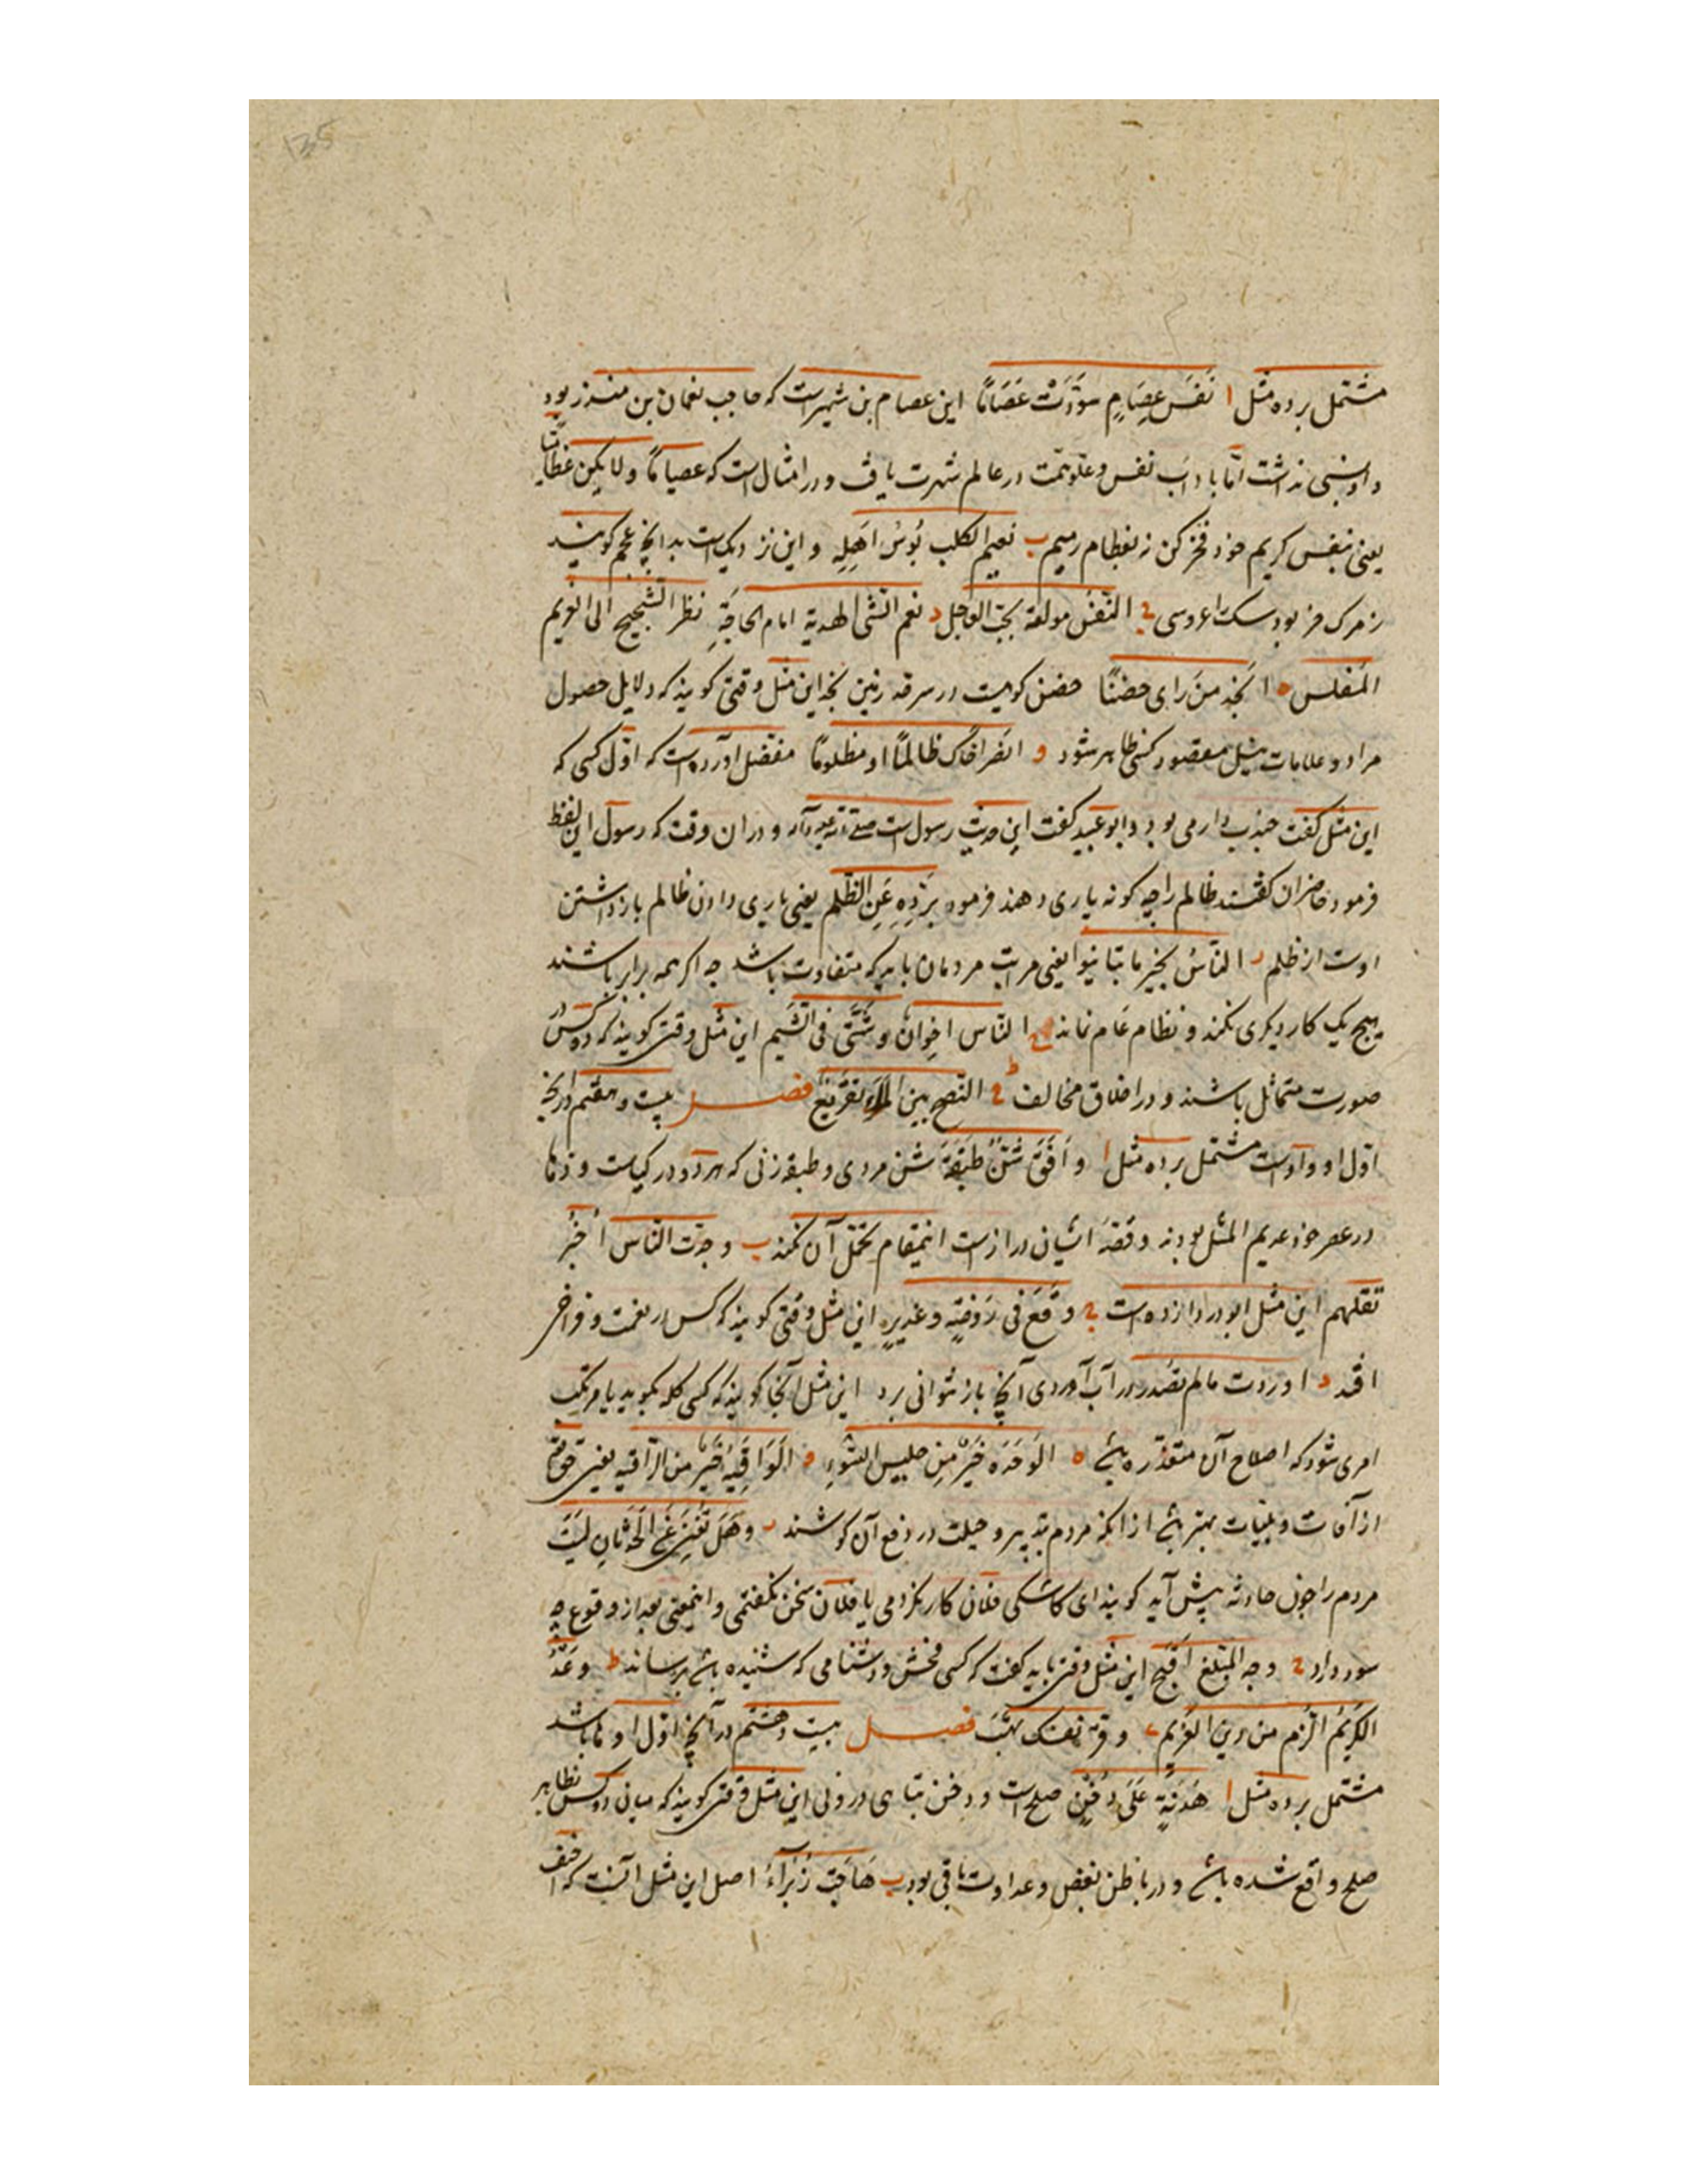 مشتمل بر ده مثل ا نَفْسُ عِصَامٍ سَوَّدَتْ عِصَامًا این عصام بن شهبرست که حاجب نعمان بن منذر بود
و او نسبی نداشت اما باداب نفس و علو همت در عالم شهرت یافت و در امثال است که عصامیا و لا یکن عظامیا
یعنی بنفس کریم خود فخر کن نه بعظام رمیم ب نعیم الکلب بُوسُ اَهلِهِ و این نزدیک است بدانچه عجم کویند
ز مرک خر بود سکرا عروسی ج النفس مولعة بحب العاجل د نعم الشی الهدیة امام الحاجَةِ نظر الشحیح الی الغریم
المفلس ه انجد من رای حضنًا حضن کوهیست در سرحد زمین نجد این مثل وقتی کویند که دلایل حصول
مراد و علامات نیل مقصود کسی ظاهر شود و انصر اخاک ظالمًا او مظلومًا مفضل آورده است که اول کسی که
این مثل کفت جندب دارمی بود و ابو عبید کفت این حدیث رسول است صلی الله علیه و آله و در ان وقت که رسول این لفظ
فرمود حاضران کفتند ظالم را چه کونه یاری دهند فرمود بردِهِ عَنِ الظُلم یعنی یاری دادن ظالم بازداشتن
اوست از ظلم ز الناسُ بخیر ما تباینوا یعنی مراتب مردمان باید که متفاوت باشد چه اکر همه برابر باشند
هیچ یک کار دیکری نکند و نظام عام نماند ح الناس اخوانٌ و شَتَّی فی الشیم این مثل وقتی کویند که دو کس در
صورت متماثل باشند و در اخلاق مخالف ط النصح بین الملاء تقریع فصل بیست و هفتم در انچه
اول او واوست مشتمل بر ده مثل ا وافَقَ شَنٌّ طبقَة شن مردی و طبقه زنی که هر دو در کیاست و ذکا
در عصر خود عدیم المثل بودند و قصه ایشان دراز است اینمقام تحمل آن نکند ب وجدت الناس اُخْبُر
تقلهم این مثل ابو دردا زده است ج وقَعَ فی رَوضَةٍ و غدیرٍ این مثل وقتی کویند که کس در نعمت و فراخی
افتد د اوردت مالم تصدر در آب آوردی آنچه باز نتوانی برد این مثل آنجا کویند که کسی کلمه بکوید یا مرتکب
امری شود که اصلاح آن متعذر باشد ه الوَحدَة خَیرٌ مِن جلیس السُّوءِ و الواقیةُ خیرٌ من الراقیه یعنی
از آفات و بلیات بهتر باشد از آنکه مردم تدبیر و حیلت در دفع آن کوشند ز وهَل تُغنِی عَنِ الحَدثانِ لَیتَ
مردم را چون حادثه پیش آید کویند ای کاشکی فلان کار نکردمی یا فلان سخن نکفتمی و اینمعنی بعد از وقوع چه
سود دارد ح وجه المبلغ اقبح این مثل وقتی باید کفت که کسی فحش و دشنامی که شنیده باشد برساند ط وعدُ
الکریم الزم من دین الغریم ی وقر نفسک تهب فصل بیست و هشتم در آنچه اول او ها باشد
مشتمل بر ده مثل ا هُدنَةٌ عَلَی دَخنٍ صلح است و دخن تباهی درونی این مثل وقتی کویند که میان دو کس بظاهر
صلح واقع شده باشد و در باطن بغض و عداوت باقی بود ب هَاجَت زَبرَاءُ اصل این مثل آنست که احنف